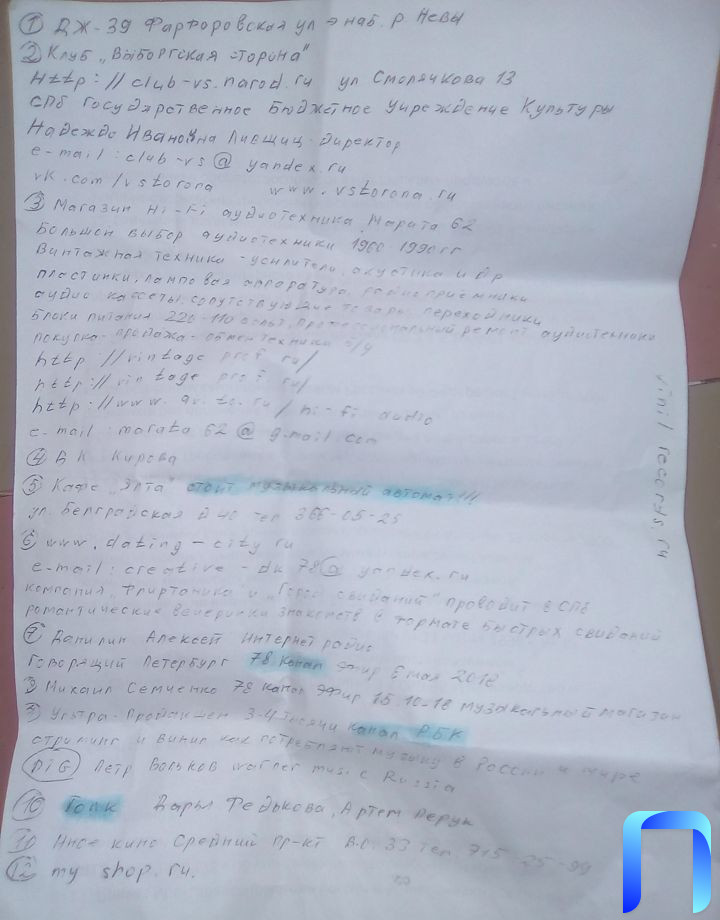 ① ДЖ-39 Фарфоровская ул → наб. р. Невы
② Клуб „Выборгская сторона"
Http://club-vs.narod.ru ул Смолячкова 13
СПб Государственное Бюджетное Учреждение Культуры
Надежда Ивановна Лившиц-директор
e-mail: club-vs@yandex.ru
vk.com/vstorona www.vstorona.ru
③ Магазин Hi-Fi аудиотехника, Марата 62
Большой выбор аудиотехники 1960-1990 гг
Винтажная техника-усилители, акустика и др
пластинки, ламповая аппаратура, радиоприёмники
аудио кассеты, сопутствующие товары, переходники
Блоки питания 220-110 вольт, профессиональный ремонт аудиотехники
покупка-продажа-обмен техники б/у
http://vintage prof ru/
http://vintage prof ru/
http://www. ru/hi-fi audio
e-mail: marata 62@gmail com
④ Д К Кирова
⑤ Кафе „Ялта" стоит музыкальный автомат!!!
ул. Белградская д 40 тел 366-05-25
⑥ www.dating-city ru
e-mail: creative-dk 78@yandex.ru
компания „Флиртаника и „Город свиданий" проводит в СПб
романтические вечеринки знакомств в формате быстрых свиданий
⑦ Данилин Алексей Интернет радио
Говорящий Петербург 78 канал Эфир 6 мая 2018
Михаил Семченко 78 канал Эфир 15.10-18 музыкальный магазин
Ультра-Продакшен 3-4 тысячи канал РБК
стриминг и винил как потребляют музыку в России и мире
DiG Петр Вольков warner music Russia
⑩ Толк Дарья Федькова, Артем
⑩ Иное кино Средний пр-кт В.О. 33 тел 715-25-99
⑫ my shop.ru.
vinil records.ru